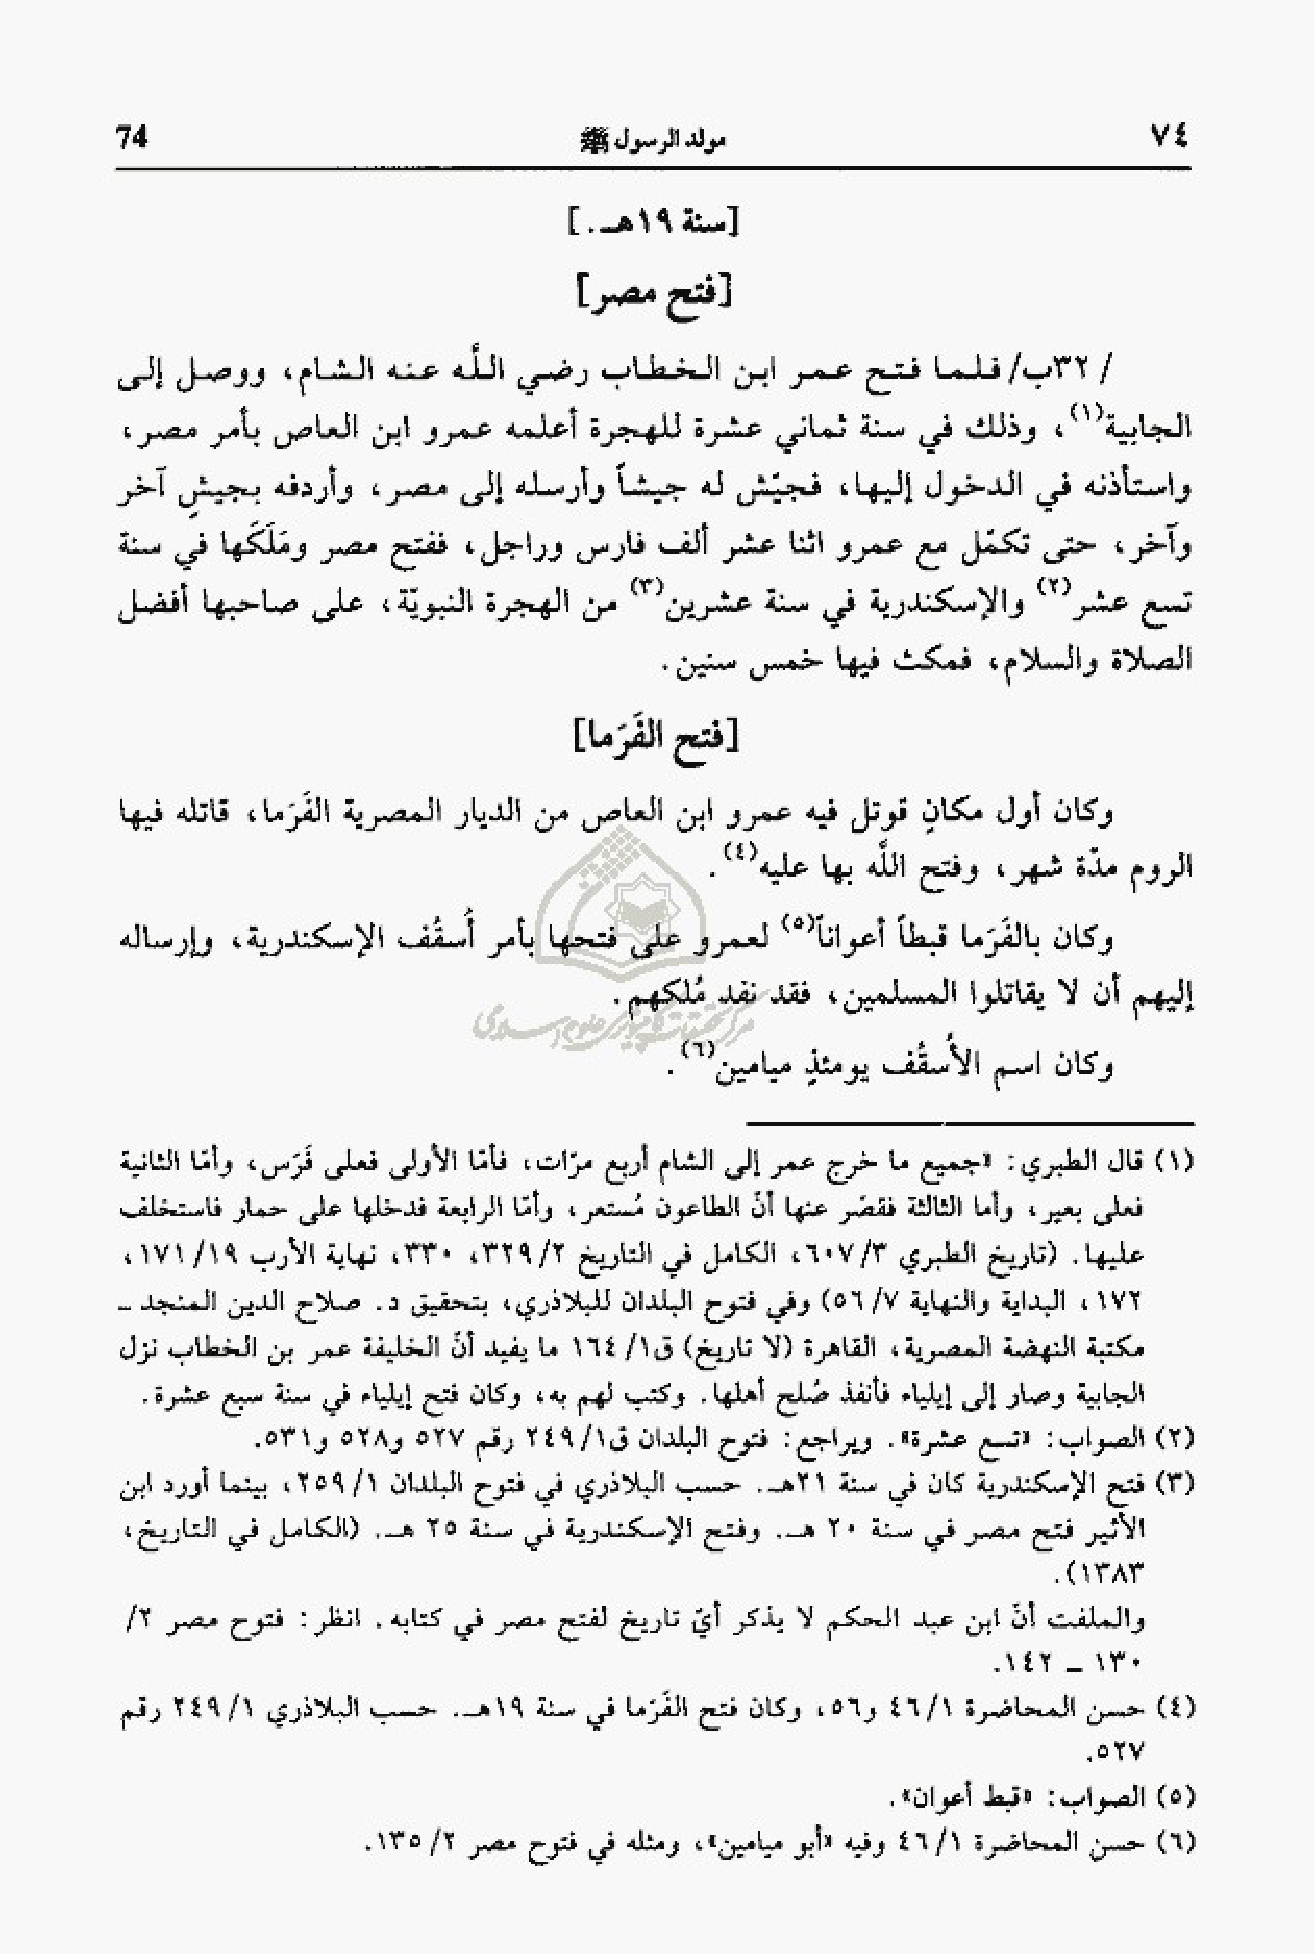 ٧٤ مولد الرسول ﷺ 74
[سنة ١٩هـ.]
[فتح مصر]
/ ٣٢ب/ فلما فتح عمر ابن الخطاب رضي اللَّه عنه الشام، ووصل إلى
الجابية(١)، وذلك في سنة ثماني عشرة للهجرة أعلمه عمرو ابن العاص بأمر مصر،
واستأذنه في الدخول إليها، فجيّش له جيشاً وأرسله إلى مصر، وأردفه بجيشٍ آخر
وآخر، حتى تكمّل مع عمرو اثنا عشر ألف فارس وراجل، ففتح مصر ومَلَكَها في سنة
تسع عشر(٢) والإسكندرية في سنة عشرين(٣) من الهجرة النبويّة، على صاحبها أفضل
الصلاة والسلام، فمكث فيها خمس سنين.
[فتح الفَرَما]
وكان أول مكانٍ قوتل فيه عمرو ابن العاص من الديار المصرية الفَرَما، قاتله فيها
الروم مدّة شهر، وفتح اللَّه بها عليه(٤).
وكان بالفَرَما قبطاً أعواناً(٥) لعمرو على فتحها بأمر أُسقُف الإسكندرية، وإرساله
إليهم أن لا يقاتلوا المسلمين، فقد نفد مُلكهم.
وكان اسم الأُسقُف يومئذٍ ميامين(٦).
(١) قال الطبري: «جميع ما خرج عمر إلى الشام أربع مرّات، فأمّا الأولى فعلى فَرَس، وأمّا الثانية
فعلى بعير، وأما الثالثة فقصّر عنها أنّ الطاعون مُستعر، وأمّا الرابعة فدخلها على حمار فاستخلف
عليها. (تاريخ الطبري ٣/ ٦٠٧، الكامل في التاريخ ٢/ ٣٢٩، ٣٣٠، نهاية الأرب ١٩/ ١٧١،
١٧٢، البداية والنهاية ٧/ ٥٦) وفي فتوح البلدان للبلاذري، بتحقيق د. صلاح الدين المنجد ـ
مكتبة النهضة المصرية، القاهرة (لا تاريخ) ق١/ ١٦٤ ما يفيد أنّ الخليفة عمر بن الخطاب نزل
الجابية وصار إلى إيلياء فأنفذ صُلح أهلها. وكتب لهم به، وكان فتح إيلياء في سنة سبع عشرة.
(٢) الصواب: «تسع عشرة». ويراجع: فتوح البلدان ق١/ ٢٤٩ رقم ٥٢٧ و٥٢٨ و٥٣١.
(٣) فتح الإسكندرية كان في سنة ٢١هـ. حسب البلاذري في فتوح البلدان ١/ ٢٥٩، بينما أورد ابن
الأثير فتح مصر في سنة ٢٠ هـ. وفتح الإسكندرية في سنة ٢٥ هـ. (الكامل في التاريخ،
١٣٨٣).
والملفت أنّ ابن عبد الحكم لا يذكر أيّ تاريخ لفتح مصر في كتابه. انظر: فتوح مصر ٢/
١٣٠ ـ ١٤٢.
(٤) حسن المحاضرة ١/ ٤٦ و٥٦، وكان فتح الفَرَما في سنة ١٩هـ. حسب البلاذري ١/ ٢٤٩ رقم
٥٢٧.
(٥) الصواب: «قبط أعوان».
(٦) حسن المحاضرة ١/ ٤٦ وفيه «أبو ميامين»، ومثله في فتوح مصر ٢/ ١٣٥.